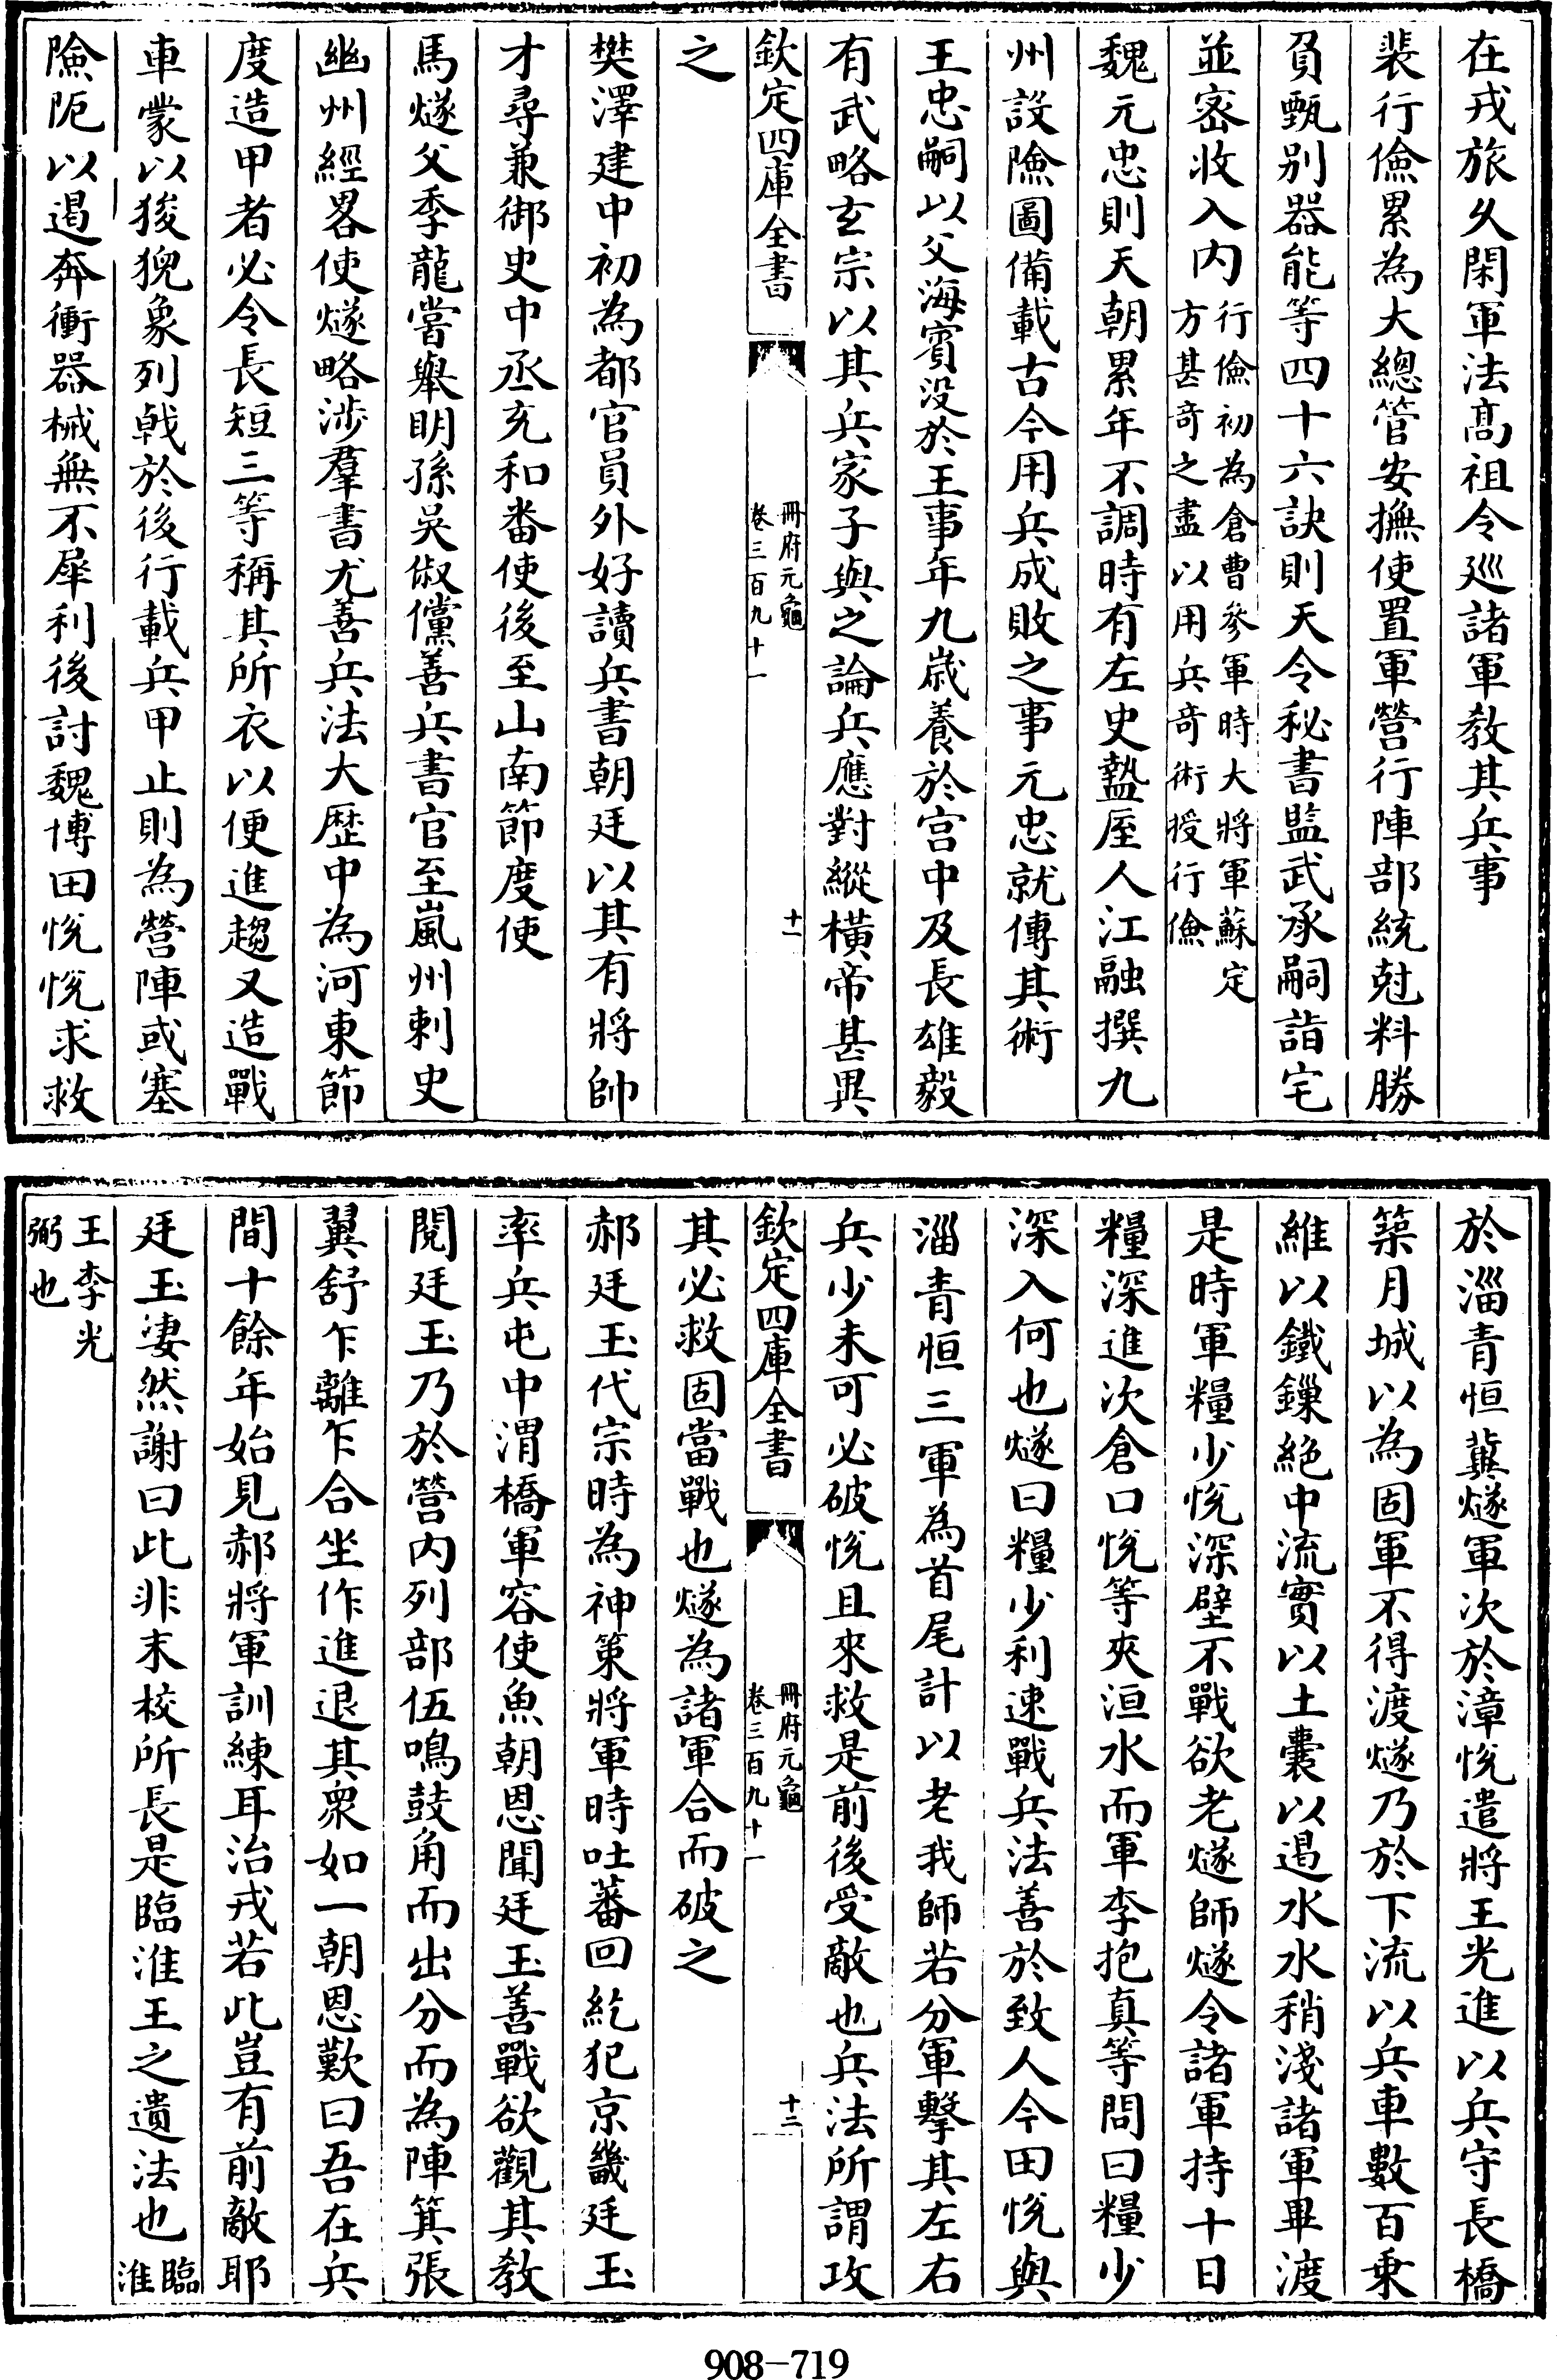 在戎旅久閑軍法髙祖令廵諸軍教其兵事
裴行儉累為大總管安撫使置軍營行陣部統尅料勝
負甄别器能等四十六訣則天令秘書監武承嗣詣宅
並宻收入内行儉初為倉曹參軍時大將軍蘇定
方甚竒之盡以用兵竒術授行儉
魏元忠則天朝累年不調時有左史盩厔人江融撰九
州設險圖備載古今用兵成敗之事元忠就傳其術
王忠嗣以父海賓没於王事年九歲養於宫中及長雄毅
有武略玄宗以其兵家子與之論兵應對縱橫帝甚異
欽定四庫全書
冊府元龜
卷三百九十一
十一
之
樊澤建中初為都官員外好讀兵書朝廷以其有將帥
才尋兼御史中丞充和番使後至山南節度使
馬燧父季龍嘗舉明孫吳俶儻善兵書官至嵐州刺史
幽州經畧使燧略涉羣書尤善兵法大歴中為河東節
度造甲者必令長短三等稱其所衣以便進趨又造戰
車䝉以狻猊象列戟於後行載兵甲止則為營陣或塞
險阨以遏奔衝器械無不犀利後討魏博田悅悅求救
於淄青恒冀燧軍次於漳悅遣將王光進以兵守長橋
築月城以為固軍不得渡燧乃於下流以兵車數百乗
維以鐵鏁絶中流實以土囊以遏水水稍淺諸軍畢渡
是時軍糧少悅深壁不戰欲老燧師燧令諸軍持十日
糧深進次倉口悅等夾洹水而軍李抱真等問曰糧少
深入何也燧曰糧少利速戰兵法善於致人今田悅與
淄青恒三軍為首尾計以老我師若分軍擊其左右
兵少未可必破悅且來救是前後受敵也兵法所謂攻
欽定四庫全書
冊府元龜
卷三百九十一
十二
其必救固當戰也燧為諸軍合而破之
郝廷玉代宗時為神策將軍時吐蕃回紇犯京畿廷玉
率兵屯中渭橋軍容使魚朝恩聞廷玉善戰欲觀其教
閱廷玉乃於營内列部伍鳴鼓角而出分而為陣箕張
翼舒乍離乍合坐作進退其衆如一朝恩歎曰吾在兵
間十餘年始見郝將軍訓練耳治戎若此豈有前敵耶
廷玉凄然謝曰此非末校所長是臨淮王之遺法也臨
淮
王李光
弼也
908-719